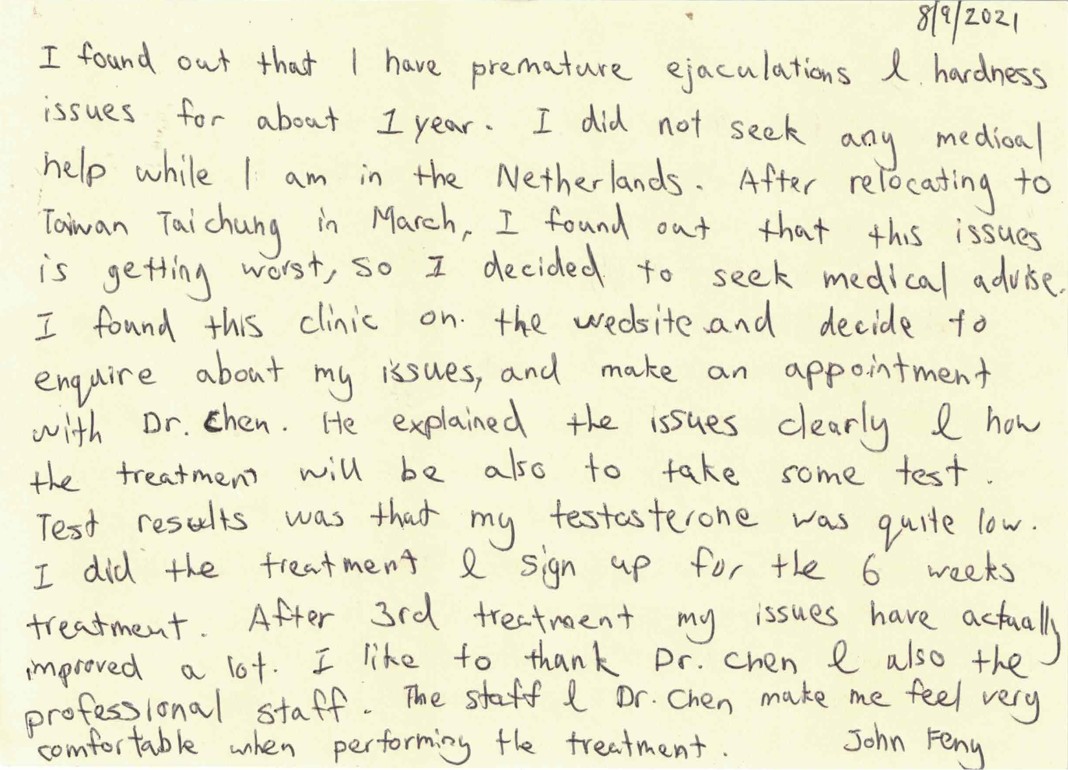 8/9/2021
I found out that I have premature ejaculations & hardness
issues for about 1 year. I did not seek any medical
help while I am in the Netherlands. After relocating to
Taiwan Taichung in March, I found out that this issues
is getting worst, so I decided to seek medical advise.
I found this clinic on the wedsite and decide to
enquire about my issues, and make an appointment
with Dr. Chen. He explained the issues clearly & how
the treatment will be also to take some test.
Test results was that my testosterone was quite low.
I did the treatment & sign up for the 6 weeks
treatment. After 3rd treatment my issues have actually
improved a lot. I like to thank Dr. Chen & also the
professional staff. The staff & Dr. Chen make me feel very
comfortable when performing the treatment. John Feng